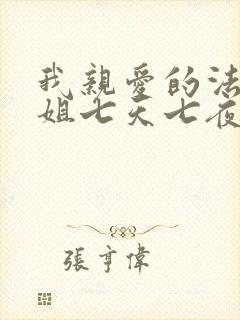 我親愛的法
姐七天七夜
張亨偉